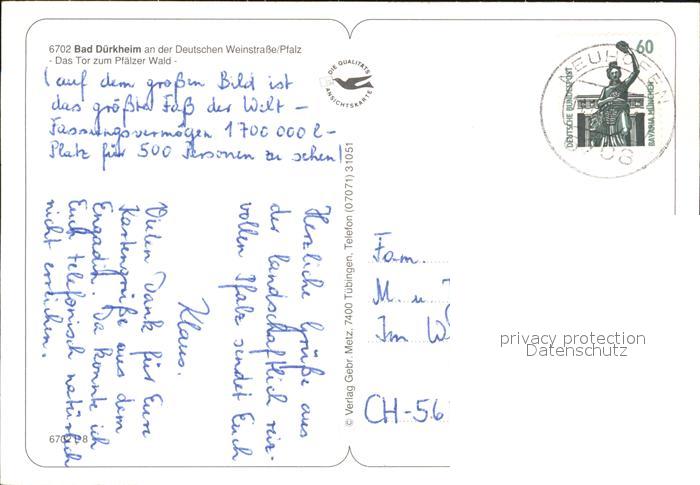 6702 Bad Dürkheim an der Deutschen Weinstraße/Pfalz
- Das Tor zum Pfälzer Wald -
(auf dem großen Bild ist
das größte Faß der Welt –
Fassungsvermögen 1700 000 l –
Platz für 500 Personen zu sehen!
Herzliche Grüße aus
der landschaftlich reiz-
vollen Pfalz sendet Euch
Klaus.
Vielen Dank für Eure
Kartengrüße aus dem
Engadin. Da konnte ich
Euch telefonisch natürlich
nicht erreichen.
6702
8
© Verlag Gebr. Metz, 7400 Tübingen, Telefon (07071) 31051
DIE QUALITÄTS
ANSICHTSKARTE
60
DEUTSCHE BUNDESPOST
BAVARIA MÜNCHEN
NEUHOFEN
Fam.
M. u.
Im
CH-56
privacy protection
Datenschutz